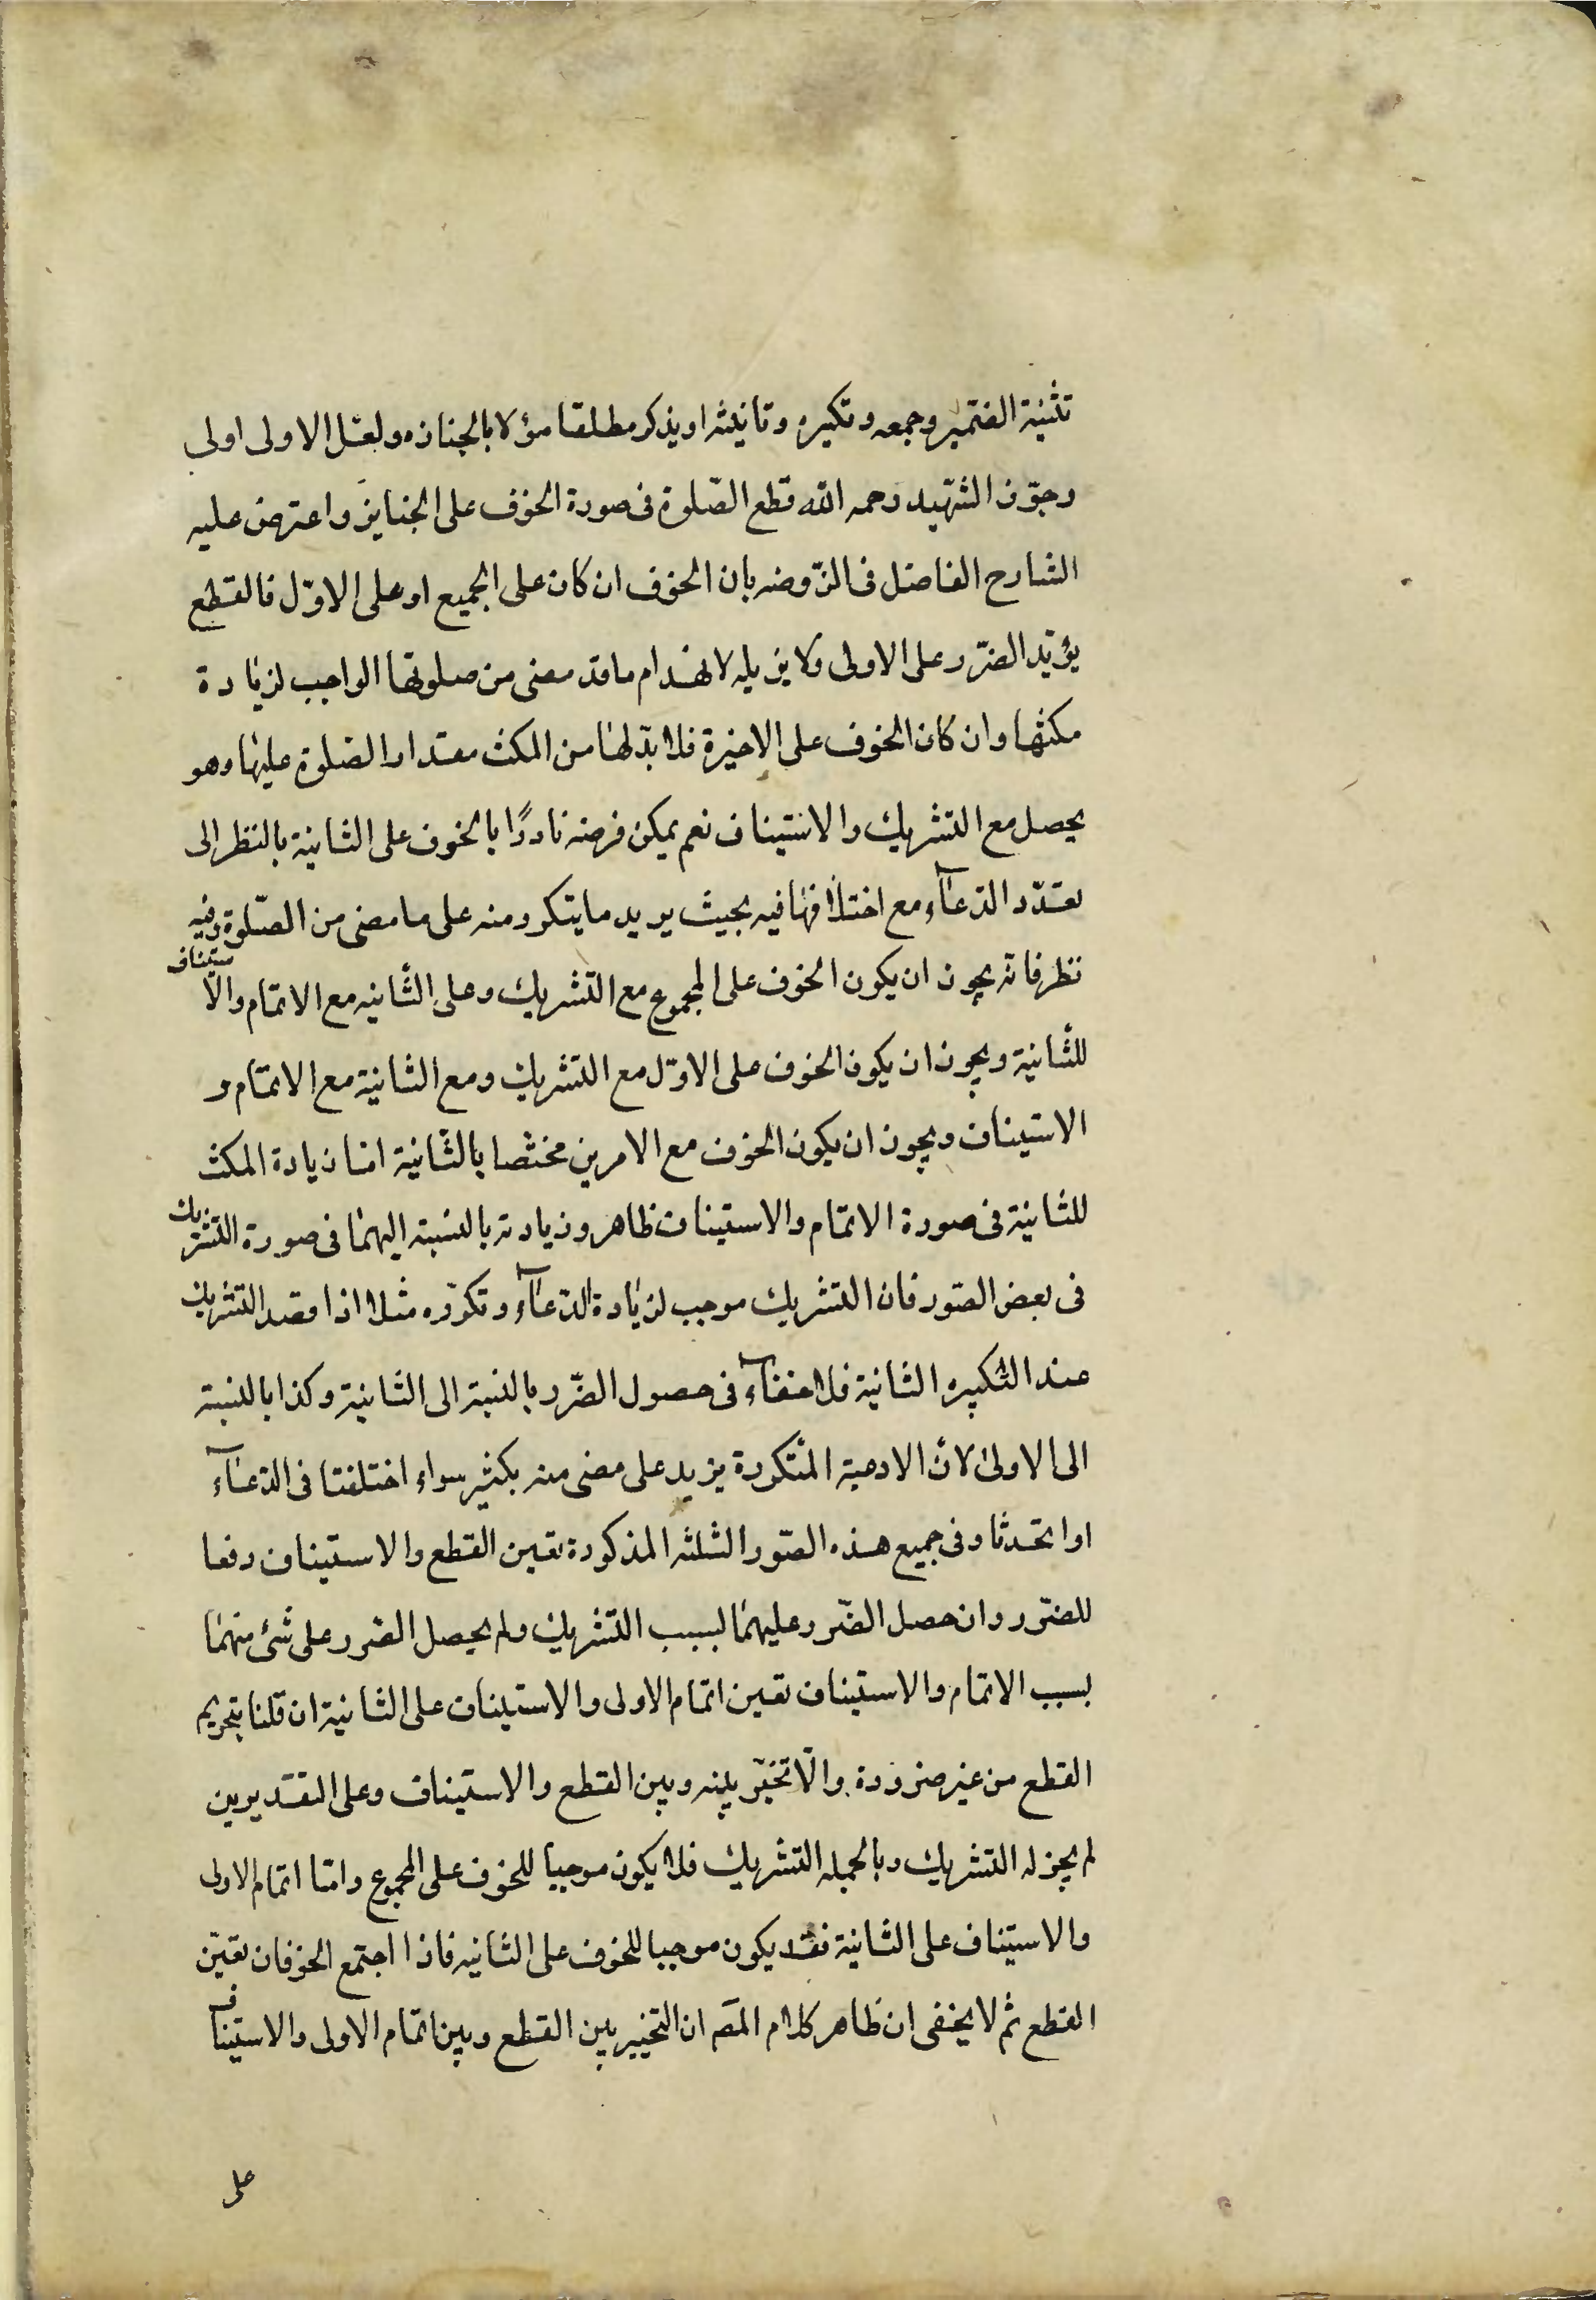 تثنية الضمير وجمعه وتكيره وتانيثه او يذكر مطلقا مؤلا بالجنازه ولعل الاولى اولى
وجوز الشهيد رحمه الله قطع الصلوة فى صورة الخوف على الجنايز واعترض عليه
الشارح الفاضل فى الروضه بان الخوف ان كان على الجميع او على الاوّل فالقطع
يؤيد الضرر على الاولى ولا يزيله لانهدام ما قد مضى من صلوتها الواجب لزيادة
مكثها وان كان الخوف على الاخيرة فلا بدّ لها من المكث مقدار الصلوة عليها وهو
يحصل مع التشريك والاستيناف نعم يمكن فرضه نادرًا بالخوف على الثانية بالنظر الى
تعدّد الدعآء مع اختلافها فيه بحيث يريد ما يتكرر منه على ما مضى من الصّلوة وفيه
نظر فانه يجوز ان يكون الخوف على المجموع مع التشريك وعلى الثانيه مع الاتمام والاستيناف
للثانية ويجوز ان يكون الخوف على الاوّل مع التشريك ومع الثانية مع الاتمام و
الاستيناف ويجوز ان يكون الخوف مع الامرين مختصا بالثانية اما زيادة المكث
للثانية فى صورة الاتمام والاستيناف ظاهر وزيادته بالنسبة اليهما فى صورة التشريك
فى بعض الصور فان التشريك موجب لزيادة الدعآء وتكرّره مثلا اذا قصد التشريك
عند التكبيره الثانية فلا خفآء فى حصول الضّرر بالنسبة الى الثانية وكذا بالنسبة
الى الاولى لان الادعية المتكررة يزيد على مضى منه بكثير سواء اختلفتا فى الدعآء
او اتحدتا وفى جميع هذه الصّور الثلثه المذكورة تعين القطع والاستيناف دفعا
للضرر وان حصل الضّرر عليهما لسبب التشريك ولم يحصل الضرر على شئ منهما
بسبب الاتمام والاستيناف تعين اتمام الاولى والاستيناف على الثانية ان قلنا بتحريم
القطع من غير ضرورة والّا تخيّر بينه وبين القطع والاستيناف وعلى التقديرين
لم يجز له التشريك وبالجمله التشريك فلا يكون موجبا للخوف على المجموع وامّا اتمام الاولى
والاستيناف على الثانية فقد يكون موجبا للخوف على الثانيه فاذا اجتمع الخوفان تعيّن
القطع ثم لا يخفى ان ظاهر كلام المصّ ان التخيير بين القطع وبين اتمام الاولى والاستيناف
على